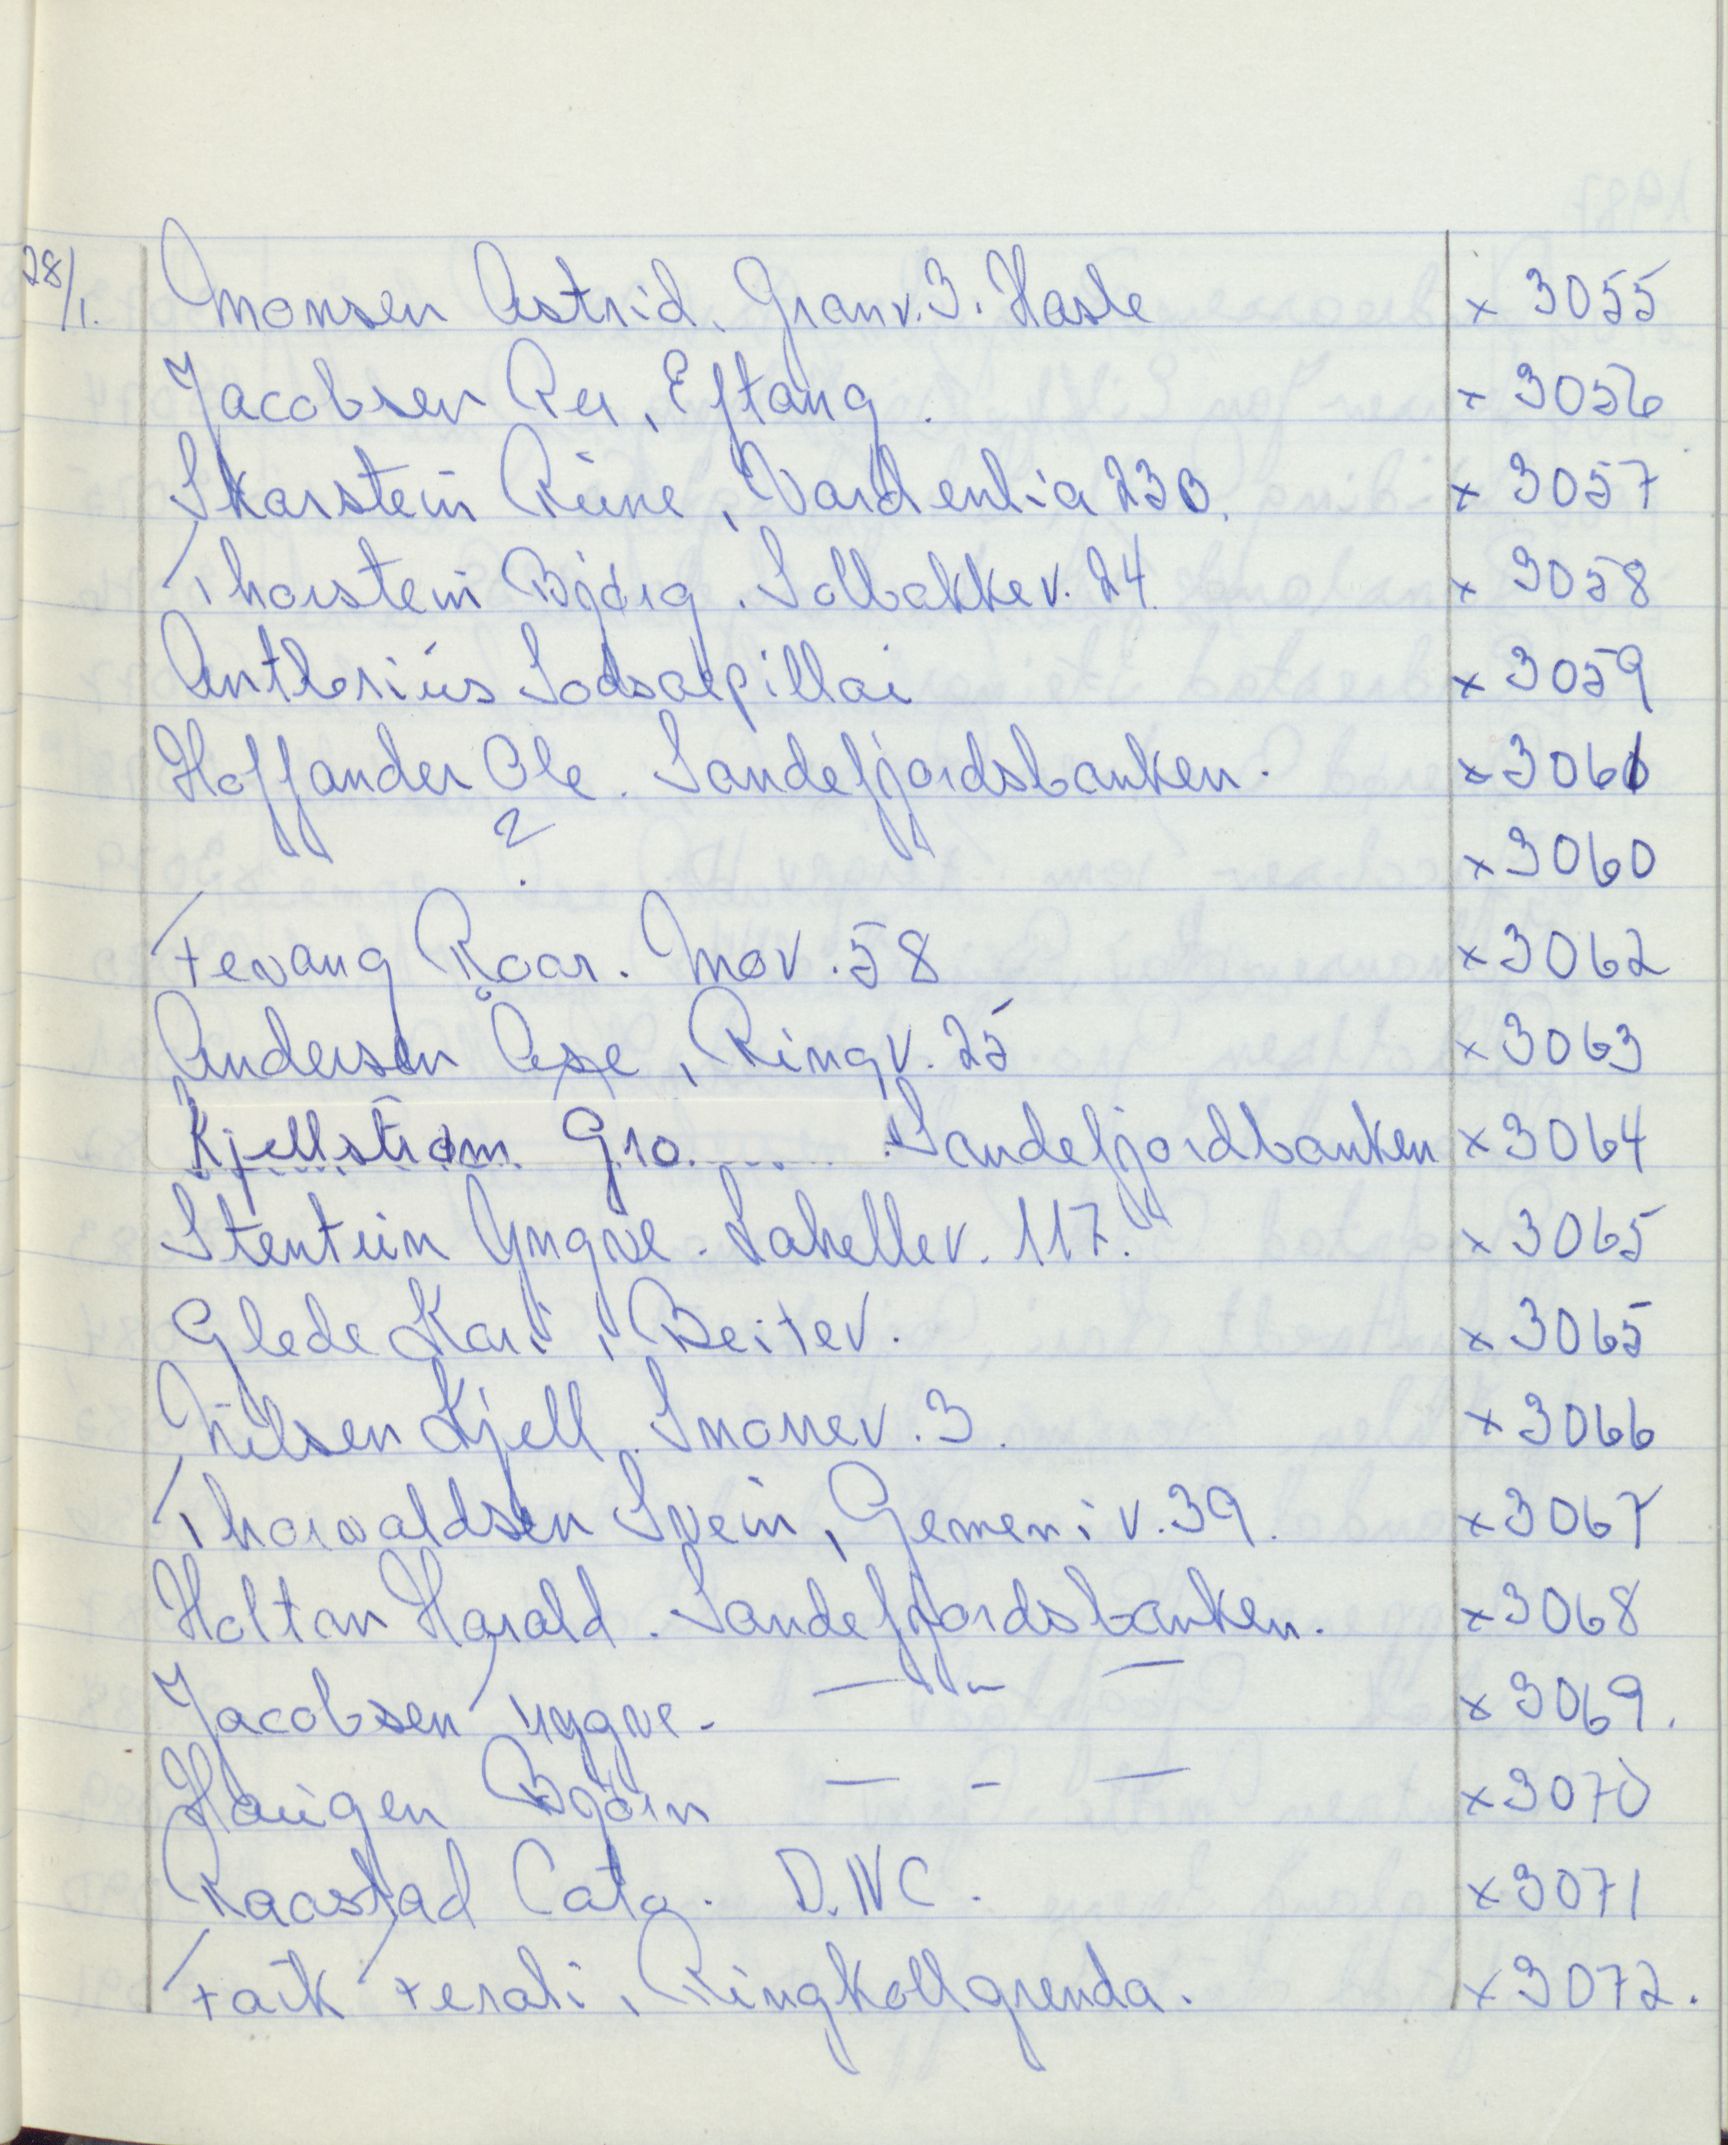 28/1. Monsen Astrid. Granv. 3. Hasle x 3055
Jacobsen Per, Eftang. x 3056
Skarstein Rune, Vardenlia 23B. x 3057
Thorstein Bjørg. Solbakkev. 24. x 3058
Anthonius x 3059
Hoffander Ole. Sandefjordsbanken. x 3061
? x 3060
Fevang Roar. Mov. 58 x 3062
Andersen Åse, Ringv. 25 x 3063
Kjellstrøm Gro. Sandefjordbanken x 3064
Stentun Yngve. Lahellev. 117. x 3065
Glede Kari, Beitev. x 3065
Nilsen Kjell. 3. x 3066
Thorvaldsen Svein, Gemeniv. 39. x 3067
Holtan Harald. Sandefjordsbanken. x 3068
Jacobsen Yngve. — " — x 3069.
Haugen Bjørn — - — x 3070
Raastad Cato. D.N.C. x 3071
Faik Ferati, Ringkollgrenda. x 3072.